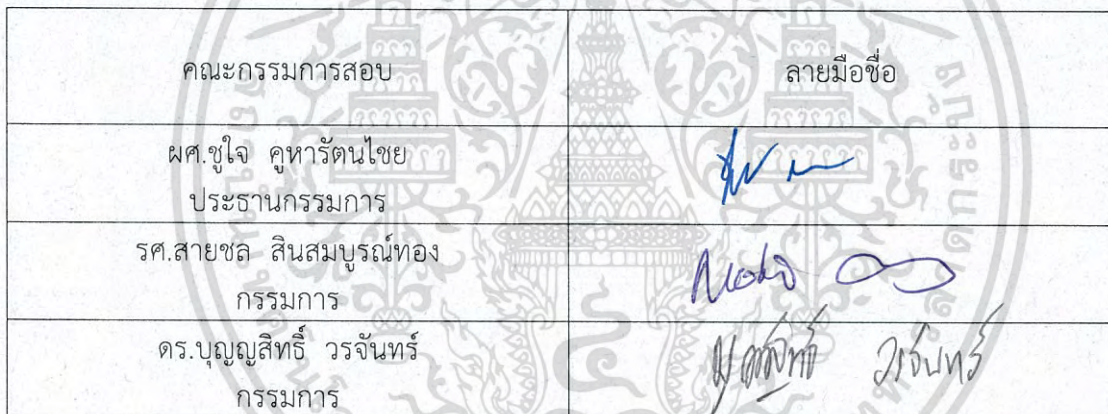 คณะกรรมการสอบ ลายมือชื่อ
ผศ.ชูใจ คูหารัตนไชย
ประธานกรรมการ
รศ.สายชล สินสมบูรณ์ทอง
กรรมการ
ดร.บุญญสิทธิ์ วรจันทร์ บุญญสิทธิ์ วรจันทร์
กรรมการ